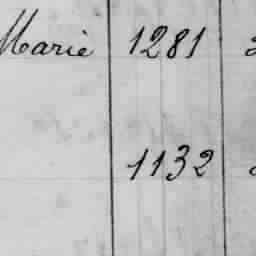 Marie 1281
1132